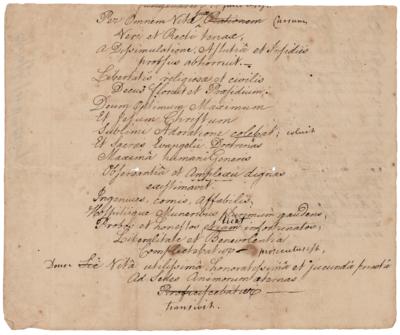 Per Omnem Vitæ Rationem Cursum
Veri et Recti tenax,
A Dissimulatione, Astutiâ et Insidiis
prorsus abhorruit.
Libertatis religiosæ et civilis
Decus floruit et Præsidium.
Deum Optimum Maximum
Et Jesum Christum
Sublimi Adoratione coluit
Et Sacras Evangelii Doctrinas
Maximâ humani Generis
Observantiâ et Amplexu dignas
existimavit.
Ingenuus, comis, Affabilis,
Hospitiique Muneribus gaudens,
Probos et honestos licet infortunatos,
Liberalitate et Benevolentia
Complectebatur
Donec Sic Vitâ utilissimâ honoratissimâ et jucundâ
Ad Sedes Animorum æternas
Proficiscebatur
transivit.